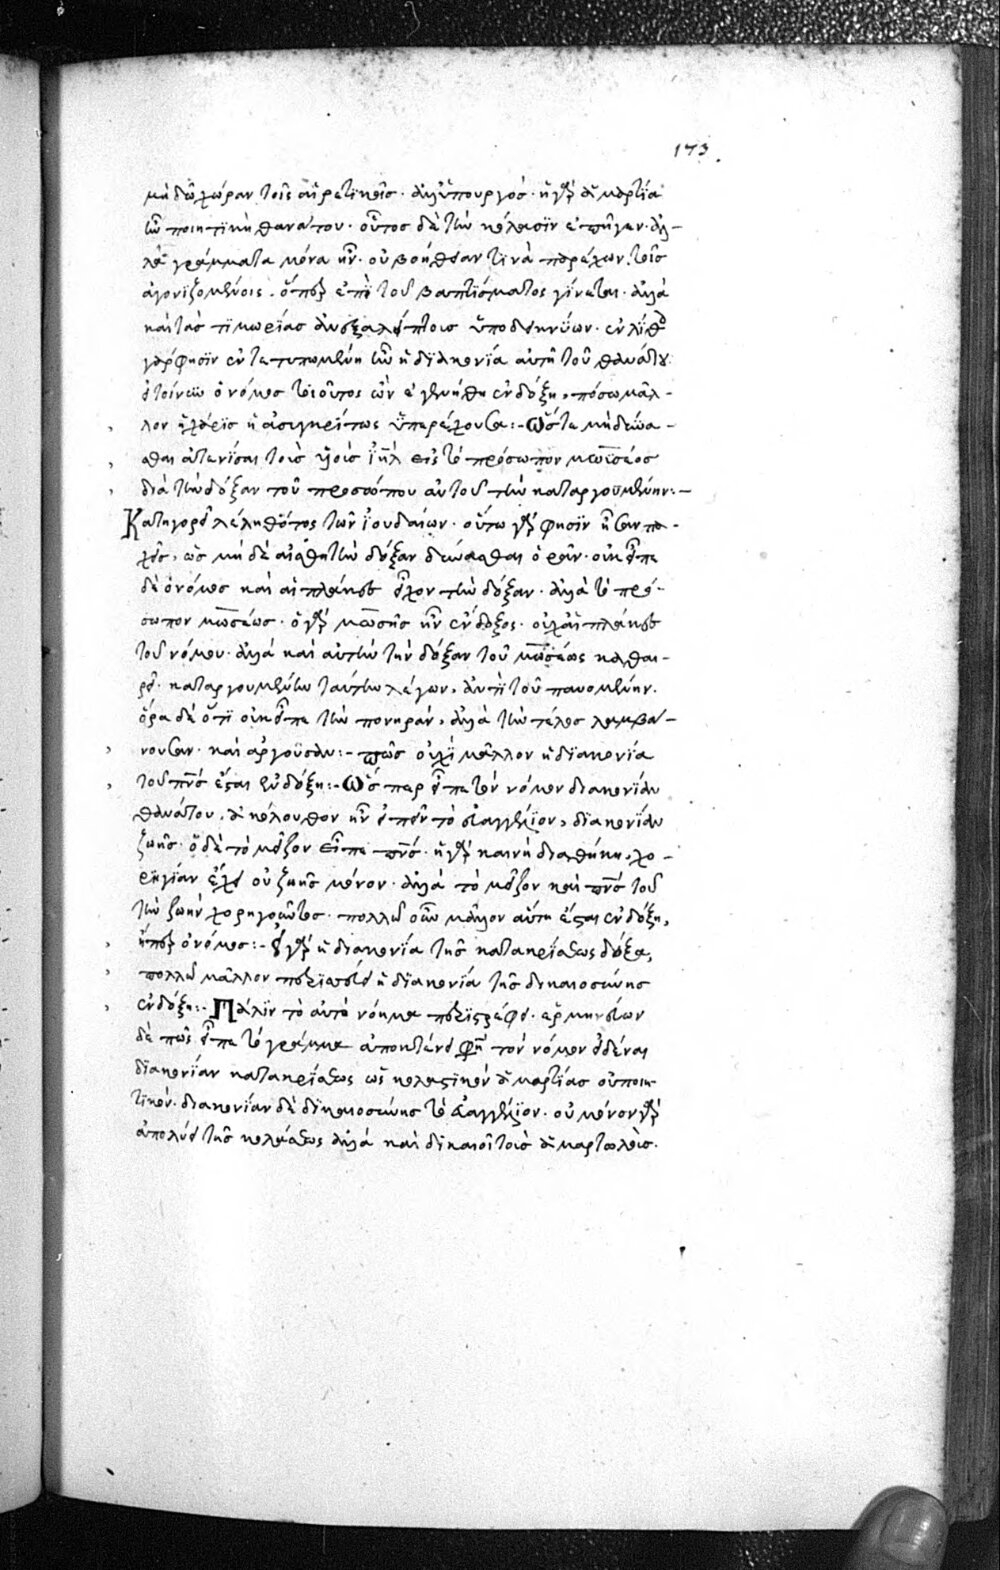 173
μὴ δῶ χώραν τοῖς αἱρετικοῖς. ἀλλ' ὑπουργός. ἡ γὰρ ἁμαρτία
ἦν ποιητικὴ θανάτου. οὗτος δὲ τὴν κόλασιν ἐπῆγεν. ἀλ-
λὰ γράμματα μόνα ἦν. οὐ βοήθειαν τινὰ παρέχων τοῖς
ἀγωνιζομένοις. ὅπερ ἐπὶ τοῦ βαπτίσματος γίνεται. ἀλλὰ
καὶ τὰς τιμωρίας ἀνεξαλείπτους ὑποδεικνύων. ἐν λίθῳ
γάρ φησιν ἐντετυπωμένη ἦν ἡ διακονία αὐτὴ τοῦ θανάτου.
εἰ τοίνυν ὁ νόμος τοιοῦτος ὢν ἐγενήθη ἐν δόξῃ, πόσω μᾶλ-
λον ἡ χάρις ἡ ἀσυγκρίτως ὑπερέχουσα:- Ὥστε μὴ δύνα-
σθαι ἀτενίσαι τοὺς υἱοὺς ιηλ εἰς τὸ πρόσωπον μωϋσέος
διὰ τὴν δόξαν τοῦ προσώπου αὐτοῦ τὴν καταργουμένην:-
Κατηγορεῖ λεληθότως τῶν ἰουδαίων. οὕτω γάρ φησιν ἦσαν πα-
χεῖς, ὡς μὴ δὲ αἰσθητὴν δόξαν δύνασθαι ὁρᾶν. οὐκ εἶπε
δὲ ὁ νόμος καὶ αἱ πλάκες εἶχον τὴν δόξαν. ἀλλὰ τὸ πρό-
σωπον μωσέως. ὁ γὰρ μωσῆς ἦν ἔνδοξος. οὐχ αἱ πλάκες
τοῦ νόμου. ἀλλὰ καὶ αὐτὴν τὴν δόξαν τοῦ μωσέως καθαι-
ρεῖ. καταργουμένην ταύτην λέγων, ἀντὶ τοῦ παυομένην.
ὅρα δὲ ὅτι οὐκ εἶπε τὴν πονηράν, ἀλλὰ τὴν τέλος λαμβά-
νουσαν. καὶ ἀργοῦσαν:- πῶς οὐχὶ μᾶλλον ἡ διακονία
τοῦ πνς ἔσται ἐν δόξῃ:- Ὥσπερ εἶπε τὸν νόμον διακονίαν
θανάτου, ἀκόλουθον ἦν εἰπεῖν τὸ εὐαγγέλιον, διακονίαν
ζωῆς. ὁ δὲ τὸ μεῖζον εἶπε πνς. ἡ γὰρ καινὴ διαθήκη, χο-
ρηγίαν ἔχει οὐ ζωῆς μόνον. ἀλλὰ τὸ μεῖζον καὶ πνς τοῦ
τὴν ζωὴν χορηγοῦντος. πολλῶ οὖν μᾶλλον αὕτη ἔσται ἐν δόξῃ,
ἤπερ ὁ νόμος:- Εἰ γὰρ ἡ διακονία τῆς κατακρίσεως δόξα,
πολλῶ μᾶλλον περισσεύει ἡ διακονία τῆς δικαιοσύνης
ἐν δόξῃ:- Πάλιν τὸ αὐτὸ νόημα περιστρέφει. ἑρμηνεύων
δὲ πῶς εἶπε τὸ γράμμα ἀποκτένει φησὶ τὸν νόμον εἰδέναι
διακονίαν κατακρίσεως ὡς κολαστικὸν ἁμαρτίας οὐ ποιη-
τικόν. διακονίαν δὲ δικαιοσύνης τὸ εὐαγγέλιον. οὐ μόνον γὰρ
ἀπολύει τῆς κολάσεως ἀλλὰ καὶ δικαιοῖ τοὺς ἁμαρτωλούς.